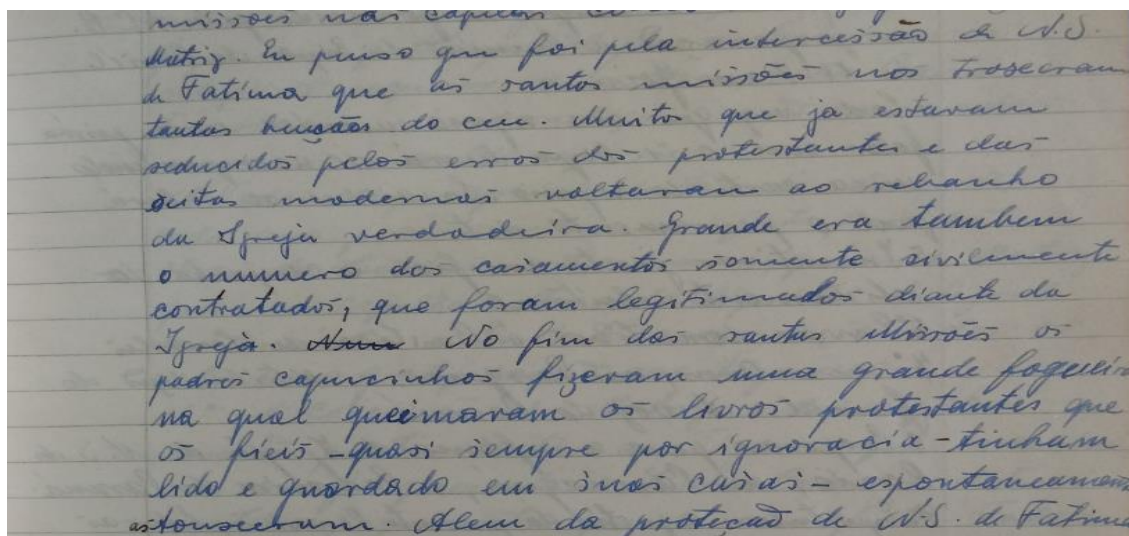 missões nas capelas
Matriz. Eu penso que foi pela intercessão de N.S.
de Fatima que as santas missões nos troseeram
tantas bençãos do ceu. Muitos que ja estavam
seducidos pelos erros dos protestantes e das
seitas modernas voltaram ao rebanho
da Igreja verdadeira. Grande era tambem
o numero dos casamentos somente sivilmente
contratados, que foram legitimados diante da
Igreja. No fim das santas Missões os
padres capucinhos fizeram uma grande fogueira
na qual queimaram os livros protestantes que
os fieis - quasi sempre por ignoracia - tinham
lido e guardado em suas casas - espontaneamente
as. Alem da proteçaõ de N.S. de Fatima